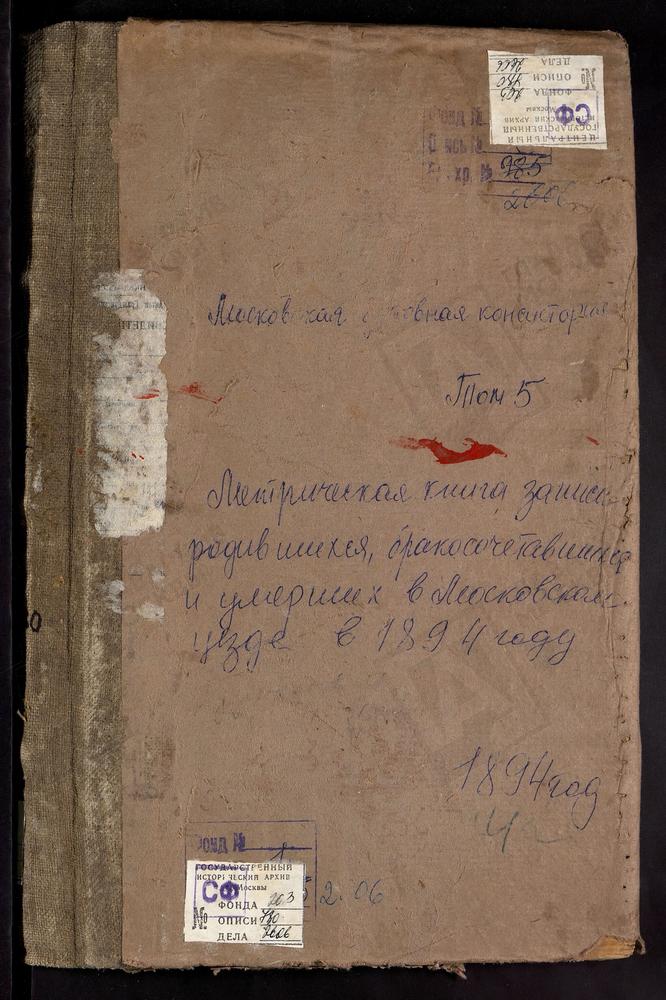 ЦЕНТРАЛЬНЫЙ
ГОСУДАРСТВЕННЫЙ
Москвы
СФ
ФОНДА 203
№ ОПИСИ 780
ДЕЛА 2606
Фонд №
Опись №
Ед. хр. № 985
2606
Московская духовная консистория
Том 5
Метрическая книга записи
родившихся, бракосочетавшихся
и умерших в Московском
уезде в 1894 году
1894 год
Фонд №
2.06
ГОСУДАРСТВЕННЫЙ
ИСТОРИЧЕСКИЙ АРХИВ
Москвы
СФ
ФОНДА 203
№ ОПИСИ 780
ДЕЛА 2606